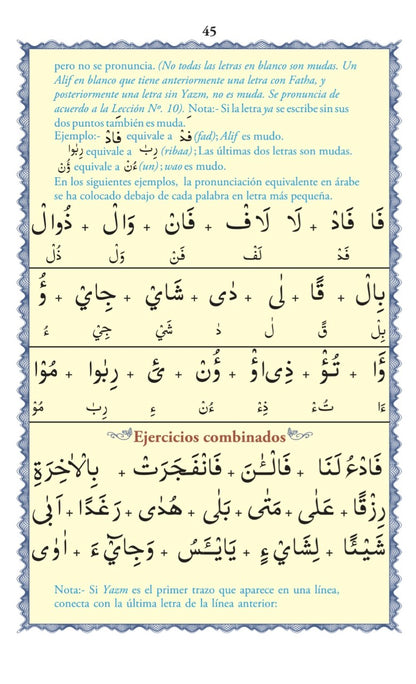 45
pero no se pronuncia. (No todas las letras en blanco son mudas. Un
Alif en blanco que tiene anteriormente una letra con Fatha, y
posteriormente una letra sin Yazm, no es muda. Se pronuncia de
acuerdo a la Lección Nº. 10). Nota:- Si la letra ya se escribe sin sus
dos puntos también es muda.
Ejemplo:- فَادْ equivale a فَدْ (fad); Alif es mudo.
رِبٰوا equivale a رِبٰ (ribaa); Las últimas dos letras son mudas.
وُنْ equivale a ءُنْ (un); wao es mudo.
En los siguientes ejemplos, la pronunciación equivalente en árabe
se ha colocado debajo de cada palabra en letra más pequeña.
فَا فَادْ + لَا لَافْ + فَانْ + وَالْ + ذُوالْ
فَدْ لَفْ فَنْ وَلْ ذُلْ
بِالْ + قًا + لٰى + دٰى + شَایْ + جِایْ + ؤُ
بِلْ قً لٰ دٰ شَیْ جِیْ ءُ
ؤَا + تُؤْ + ذِیاؤْ + ؤُنْ + ئِ + رِبٰوا + مُؤْا
ءَا تُءْ ذِءْ ءُنْ ءِ رِبٰ مُؤْ
Ejercicios combinados
فَادْعُ لَنَا + فَالْـٰٔنَ + فَانْفَجَرَتْ + بِالْاٰخِرَةِ
رِزْقًا + عَلٰى + مَتٰى + بَلٰى + هُدًى + رَغَدًا + اَبٰى
شَيْـًٔا + لِشَایْءٍ + يَايْـَٔسُ + وَجِایْٓءَ + اُوْٰى
Nota:- Si Yazm es el primer trazo que aparece en una línea,
conecta con la última letra de la línea anterior: